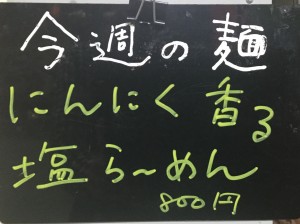 今週の麺
にんにく香る
塩ら〜めん
800円